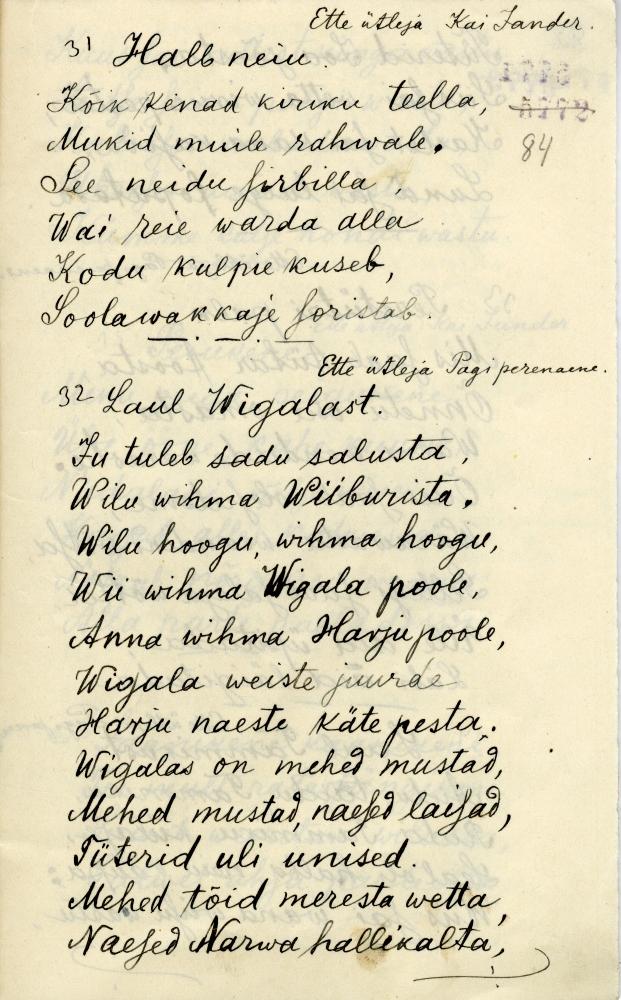 Ette ütleja Kai Tander.
31 Halb neiu.
1773
5772
84
Kõik kenad kiriku teella,
Mukid muile rahwale.
See neidu sirbilla,
Wai reie warda alla
Kodu kulpie kuseb,
Soolawakkaje soristab.
Ette ütleja Pagi perenaene.
32 Laul Wigalast.
Ju tuleb sadu salusta,
Wilu wihma Wiiburista.
Wilu hoogu, wihma hoogu,
Wii wihma Wigala poole,
Anna wihma Harju poole,
Wigala weiste juurde
Harju naeste käte pesta.
Wigalas on mehed mustad,
Mehed mustad, naesed laisad,
Tüterid uli unised.
Mehed tõid meresta wetta,
Naesed Narwa hallikalta,